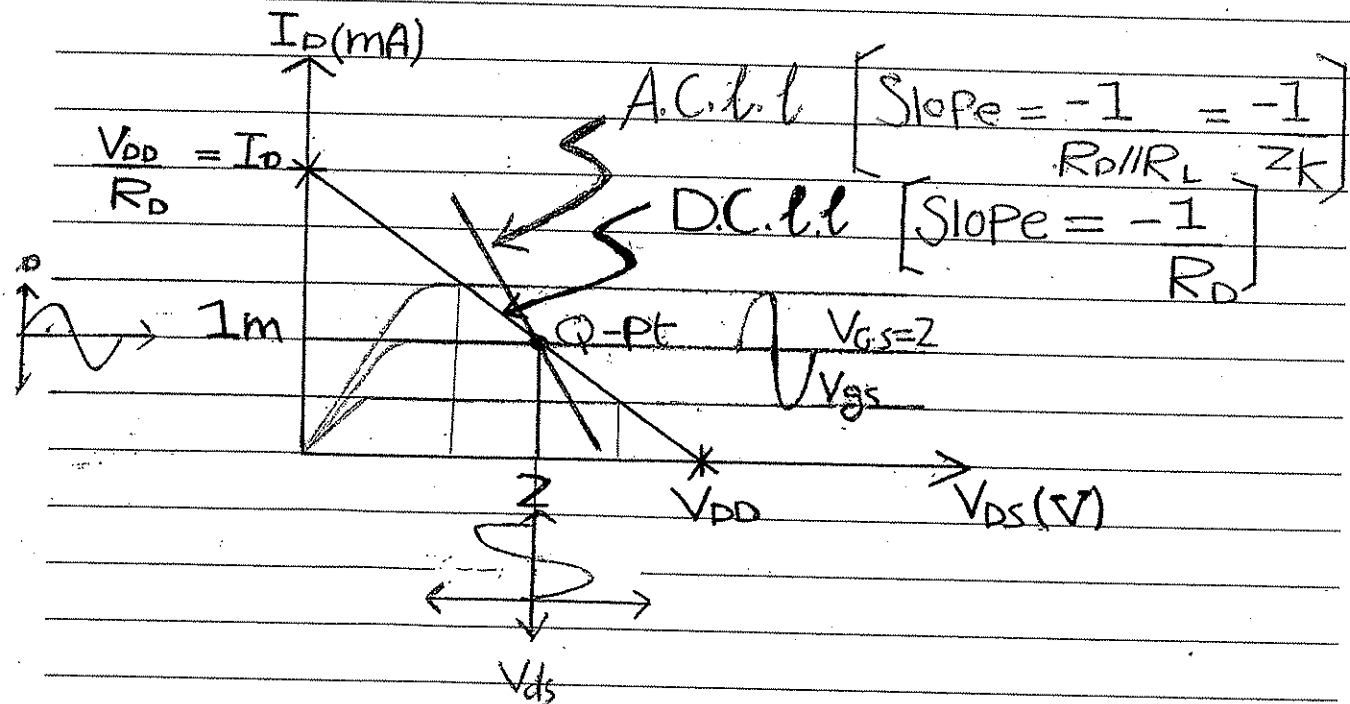 ID(mA)
A.C.l.l [Slope = -1/RD//RL = -1/2k]
VDD/RD = ID
D.C.l.l [Slope = -1/RD]
1m
Q-Pt
VGS=2
Vgs
2
VDD
VDS(V)
Vds